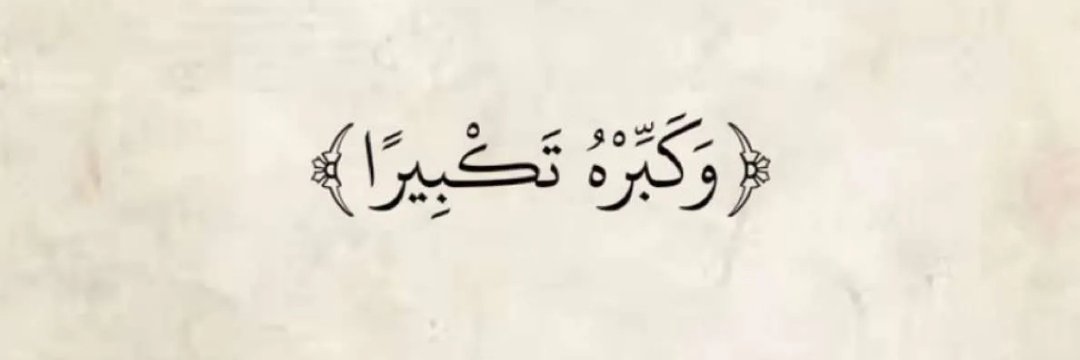 ﴿وَكَبِّرْهُ تَكْبِيرًا﴾